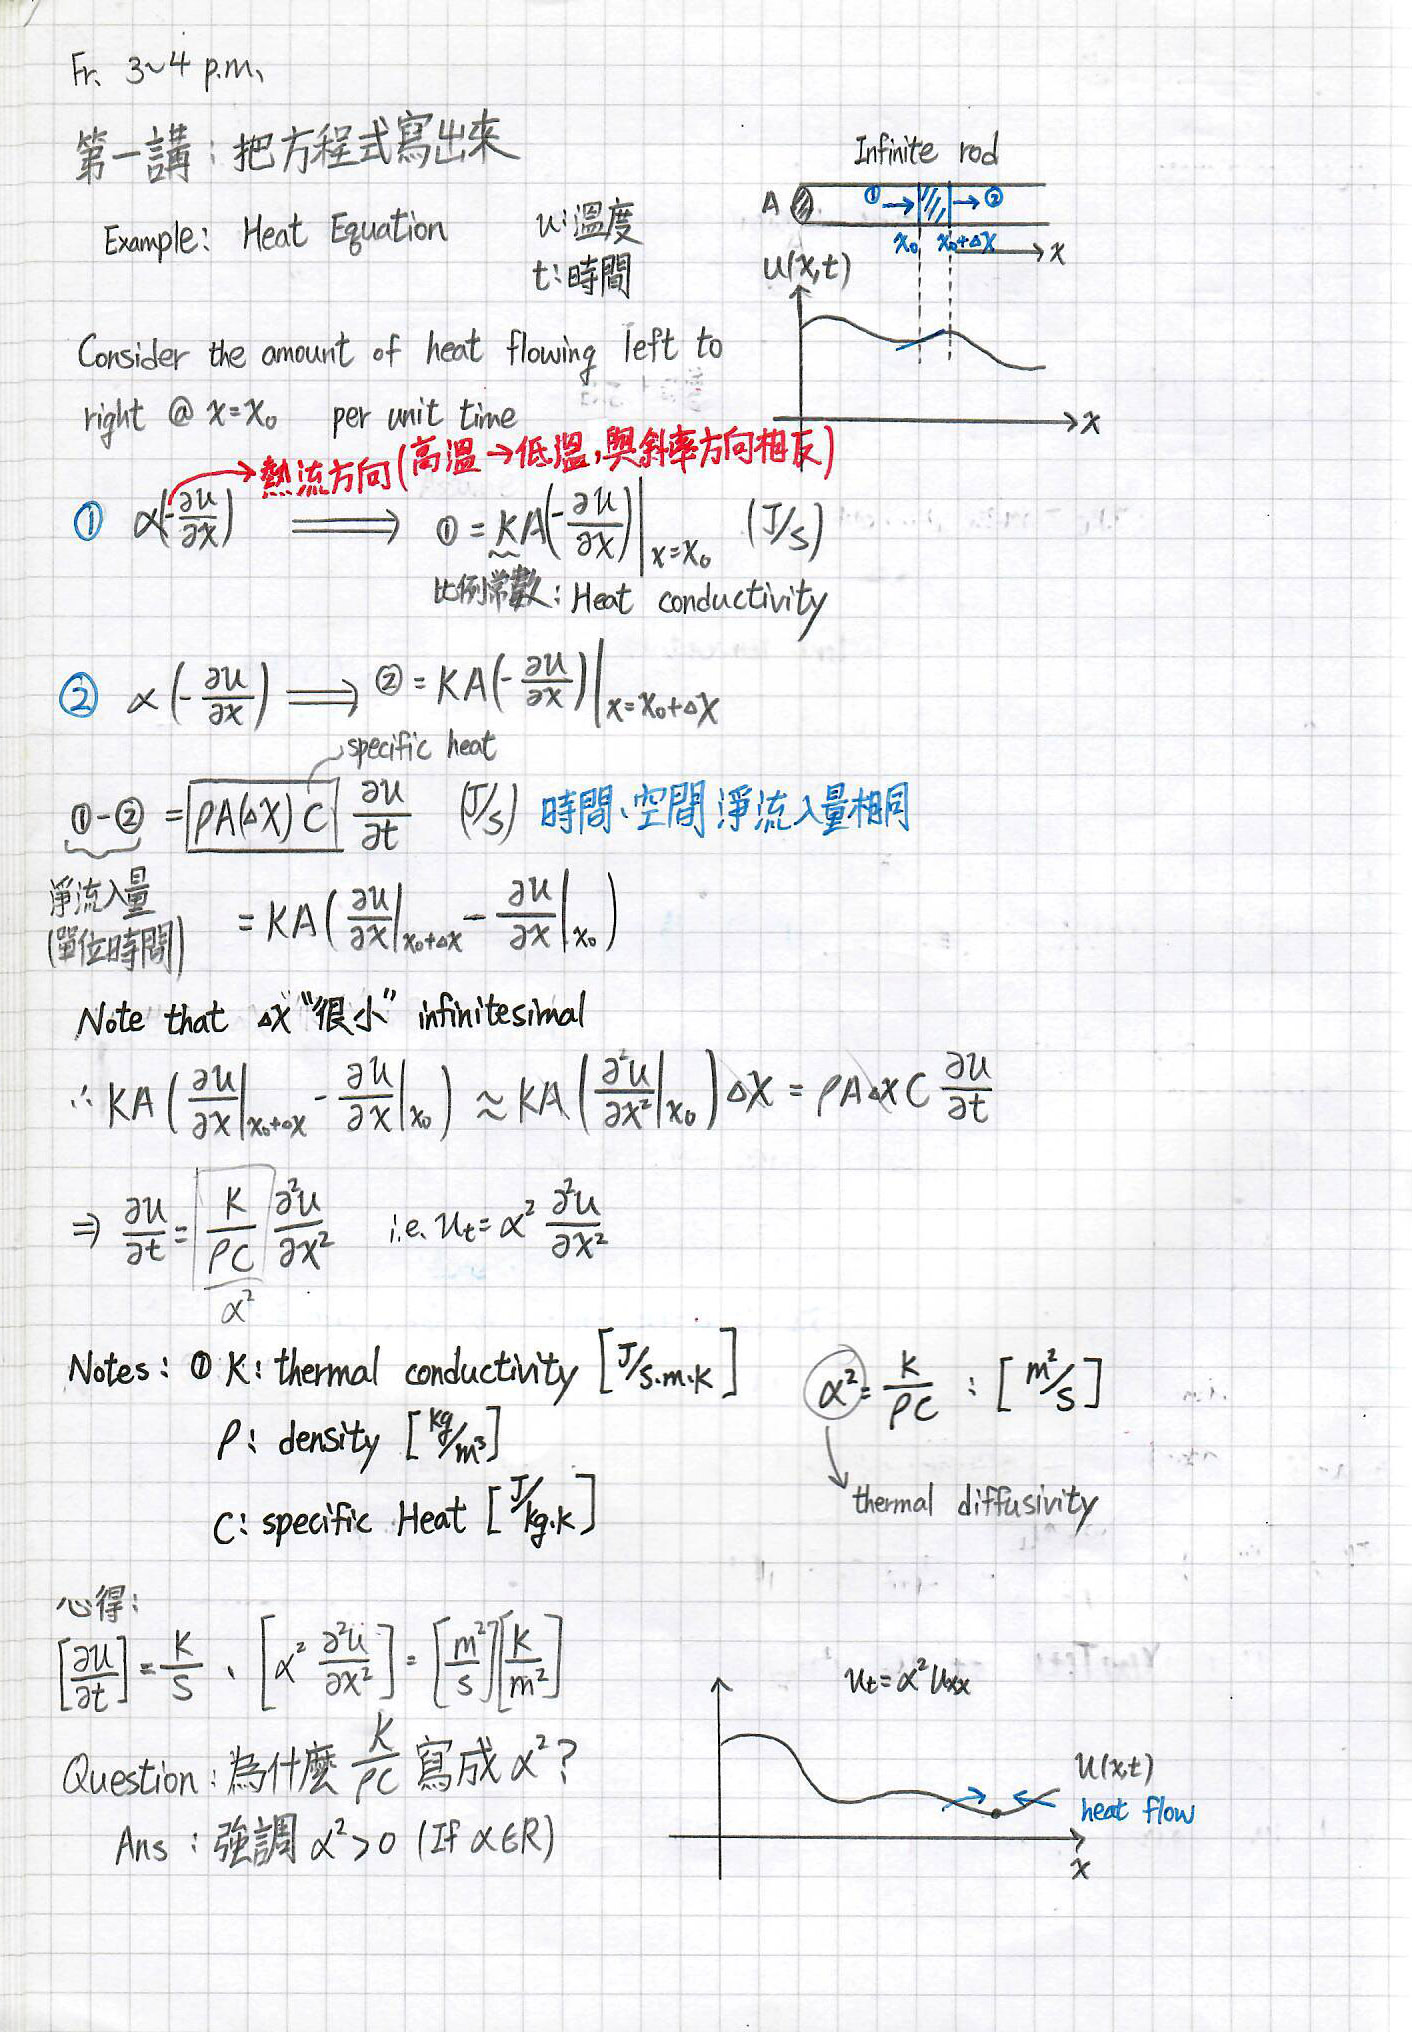 Fr. 3~4 p.m.
第一講：把方程式寫出來
Infinite rod
A ① → → ②
x₀ x₀+Δx x
Example: Heat Equation u:溫度
t:時間
U(x,t)
x
Consider the amount of heat flowing left to
right @ x=x₀ per unit time
熱流方向(高溫→低溫,與斜率方向相反)
① α(-∂u/∂x) ⟹ ① = KA(-∂u/∂x)|x=x₀ (J/s)
比例常數: Heat conductivity
② α(-∂u/∂x) ⟹ ② = KA(-∂u/∂x)|x=x₀+Δx
specific heat
①-② = ρA(Δx)C ∂u/∂t (J/s) 時間、空間淨流入量相同
淨流入量
(單位時間)
= KA(∂u/∂x|x₀+Δx - ∂u/∂x|x₀)
Note that Δx "很小" infinitesimal
∴ KA(∂u/∂x|x₀+Δx - ∂u/∂x|x₀) ≈ KA(∂²u/∂x²|x₀)Δx = ρAΔxC ∂u/∂t
⇒ ∂u/∂t = K/ρC ∂²u/∂x² i.e. uₜ = α² ∂²u/∂x²
α²
Notes: ① K: thermal conductivity [J/s·m·K]
ρ: density [kg/m³]
C: specific Heat [J/kg·k]
α² = K/ρC : [m²/s]
thermal diffusivity
心得:
[∂u/∂t] = K/s 、 [α² ∂²u/∂x²] = [m²/s][K/m²]
Question: 為什麼 K/ρC 寫成 α²?
Ans : 強調 α²>0 (If α∈R)
uₜ=α²uₓₓ
U(x,t)
heat flow
x